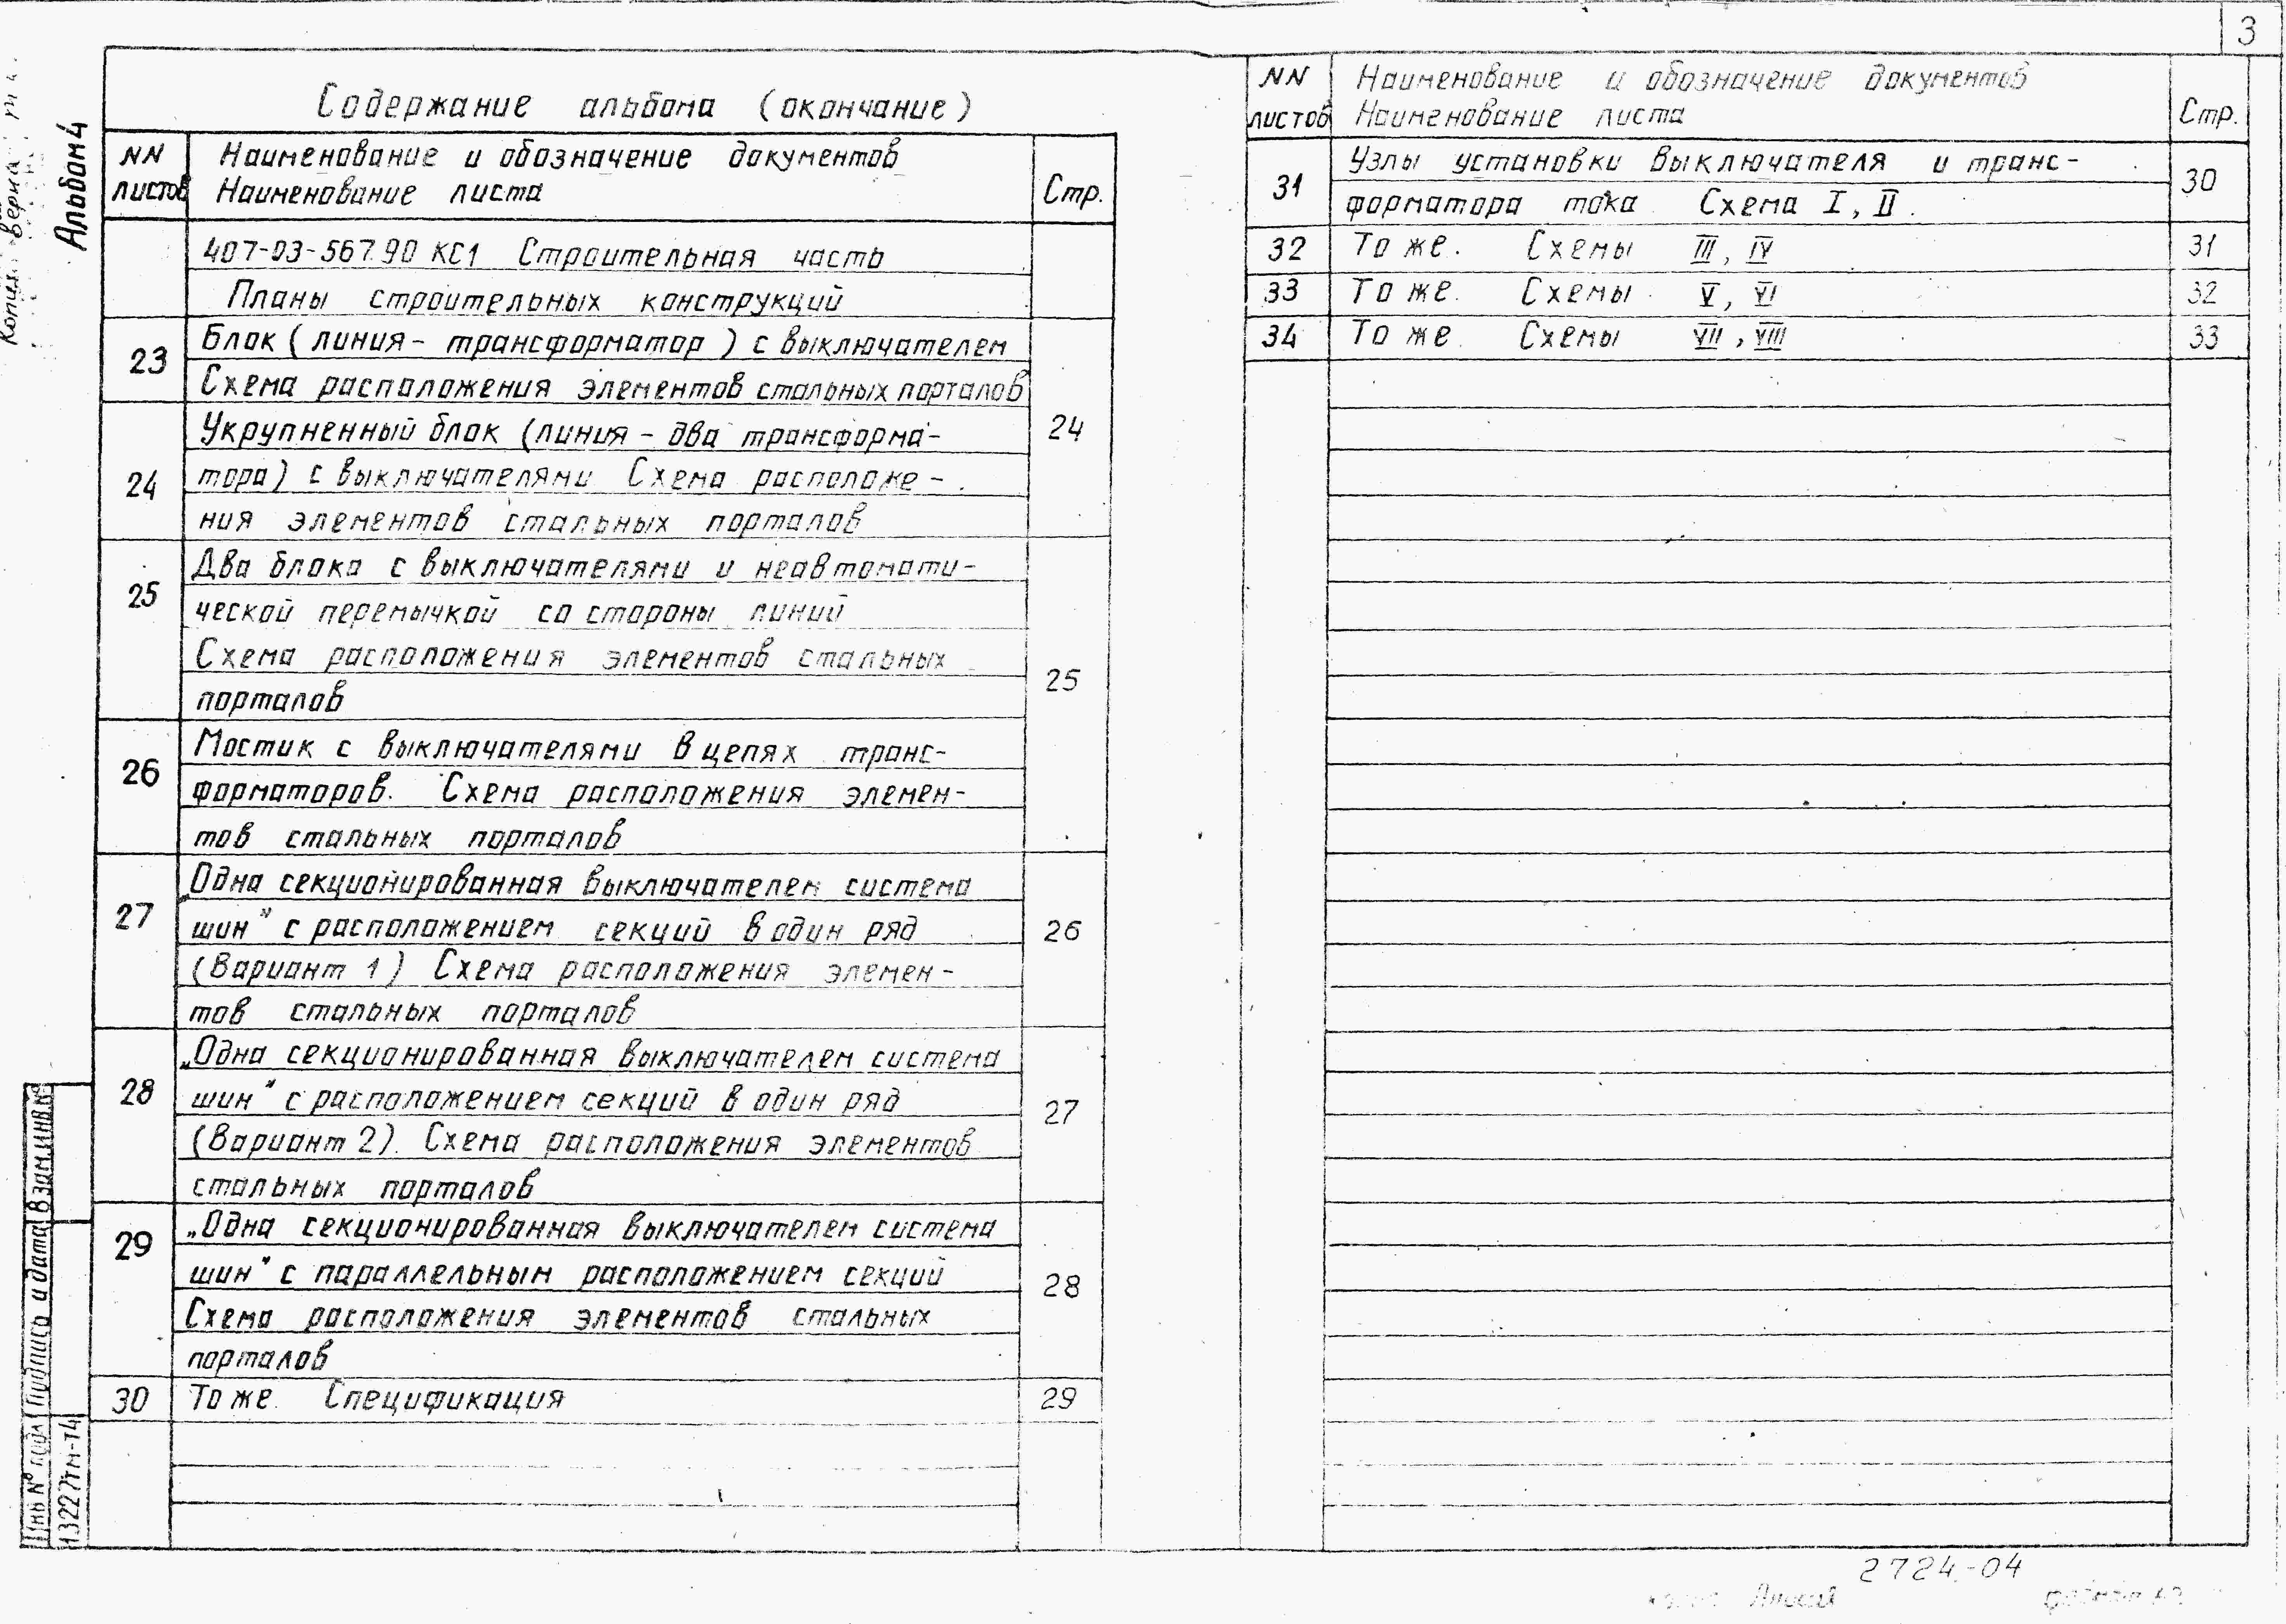 3
Альбом 4
Содержание альбома (окончание)
NN листов
Наименование и обозначение документов
Наименование листа
Стр.
407-03-567.90 КС1 Строительная часть
Планы строительных конструкций
23
Блок (линия - трансформатор) с выключателем
Схема расположения элементов стальных порталов
24
Укрупненный блок (линия - два трансформа-
24
тора) с выключателями Схема расположе-
ния элементов стальных порталов
25
Два блока с выключателями и неавтомати-
ческой перемычкой со стороны линий
Схема расположения элементов стальных
25
порталов
26
Мостик с выключателями в цепях транс-
форматоров. Схема расположения элемен-
тов стальных порталов
27
„Одна секционированная выключателем система
шин" с расположением секций в один ряд
26
(Вариант 1) Схема расположения элемен-
тов стальных порталов
28
„Одна секционированная выключателем система
шин" с расположением секций в один ряд
27
(Вариант 2). Схема расположения элементов
стальных порталов
29
„Одна секционированная выключателем система
шин" с параллельным расположением секций
28
Схема расположения элементов стальных
порталов
30 То же. Спецификация 29
NN листов
Наименование и обозначение документов
Наименование листа
Стр.
31
Узлы установки выключателя и транс-
30
форматора тока Схема I, II.
32 То же. Схемы III, IV 31
33 То же. Схемы V, VI 32
34 То же. Схемы VII, VIII 33
Взам.инв.№
Подпись и дата
Инв № подл
13227тм-т4
2724-04
формат А3